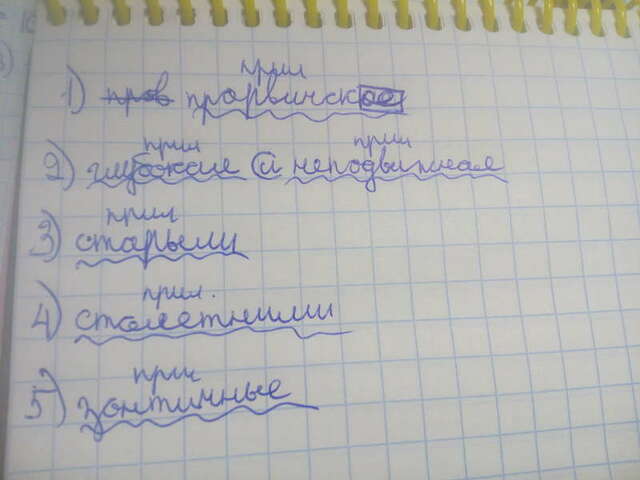 прил
1) пров прорвинское
прил прил
2) глубокие и неподвижная
прил
3) старыми
прил.
4) столетними
прил
5) зонтичные